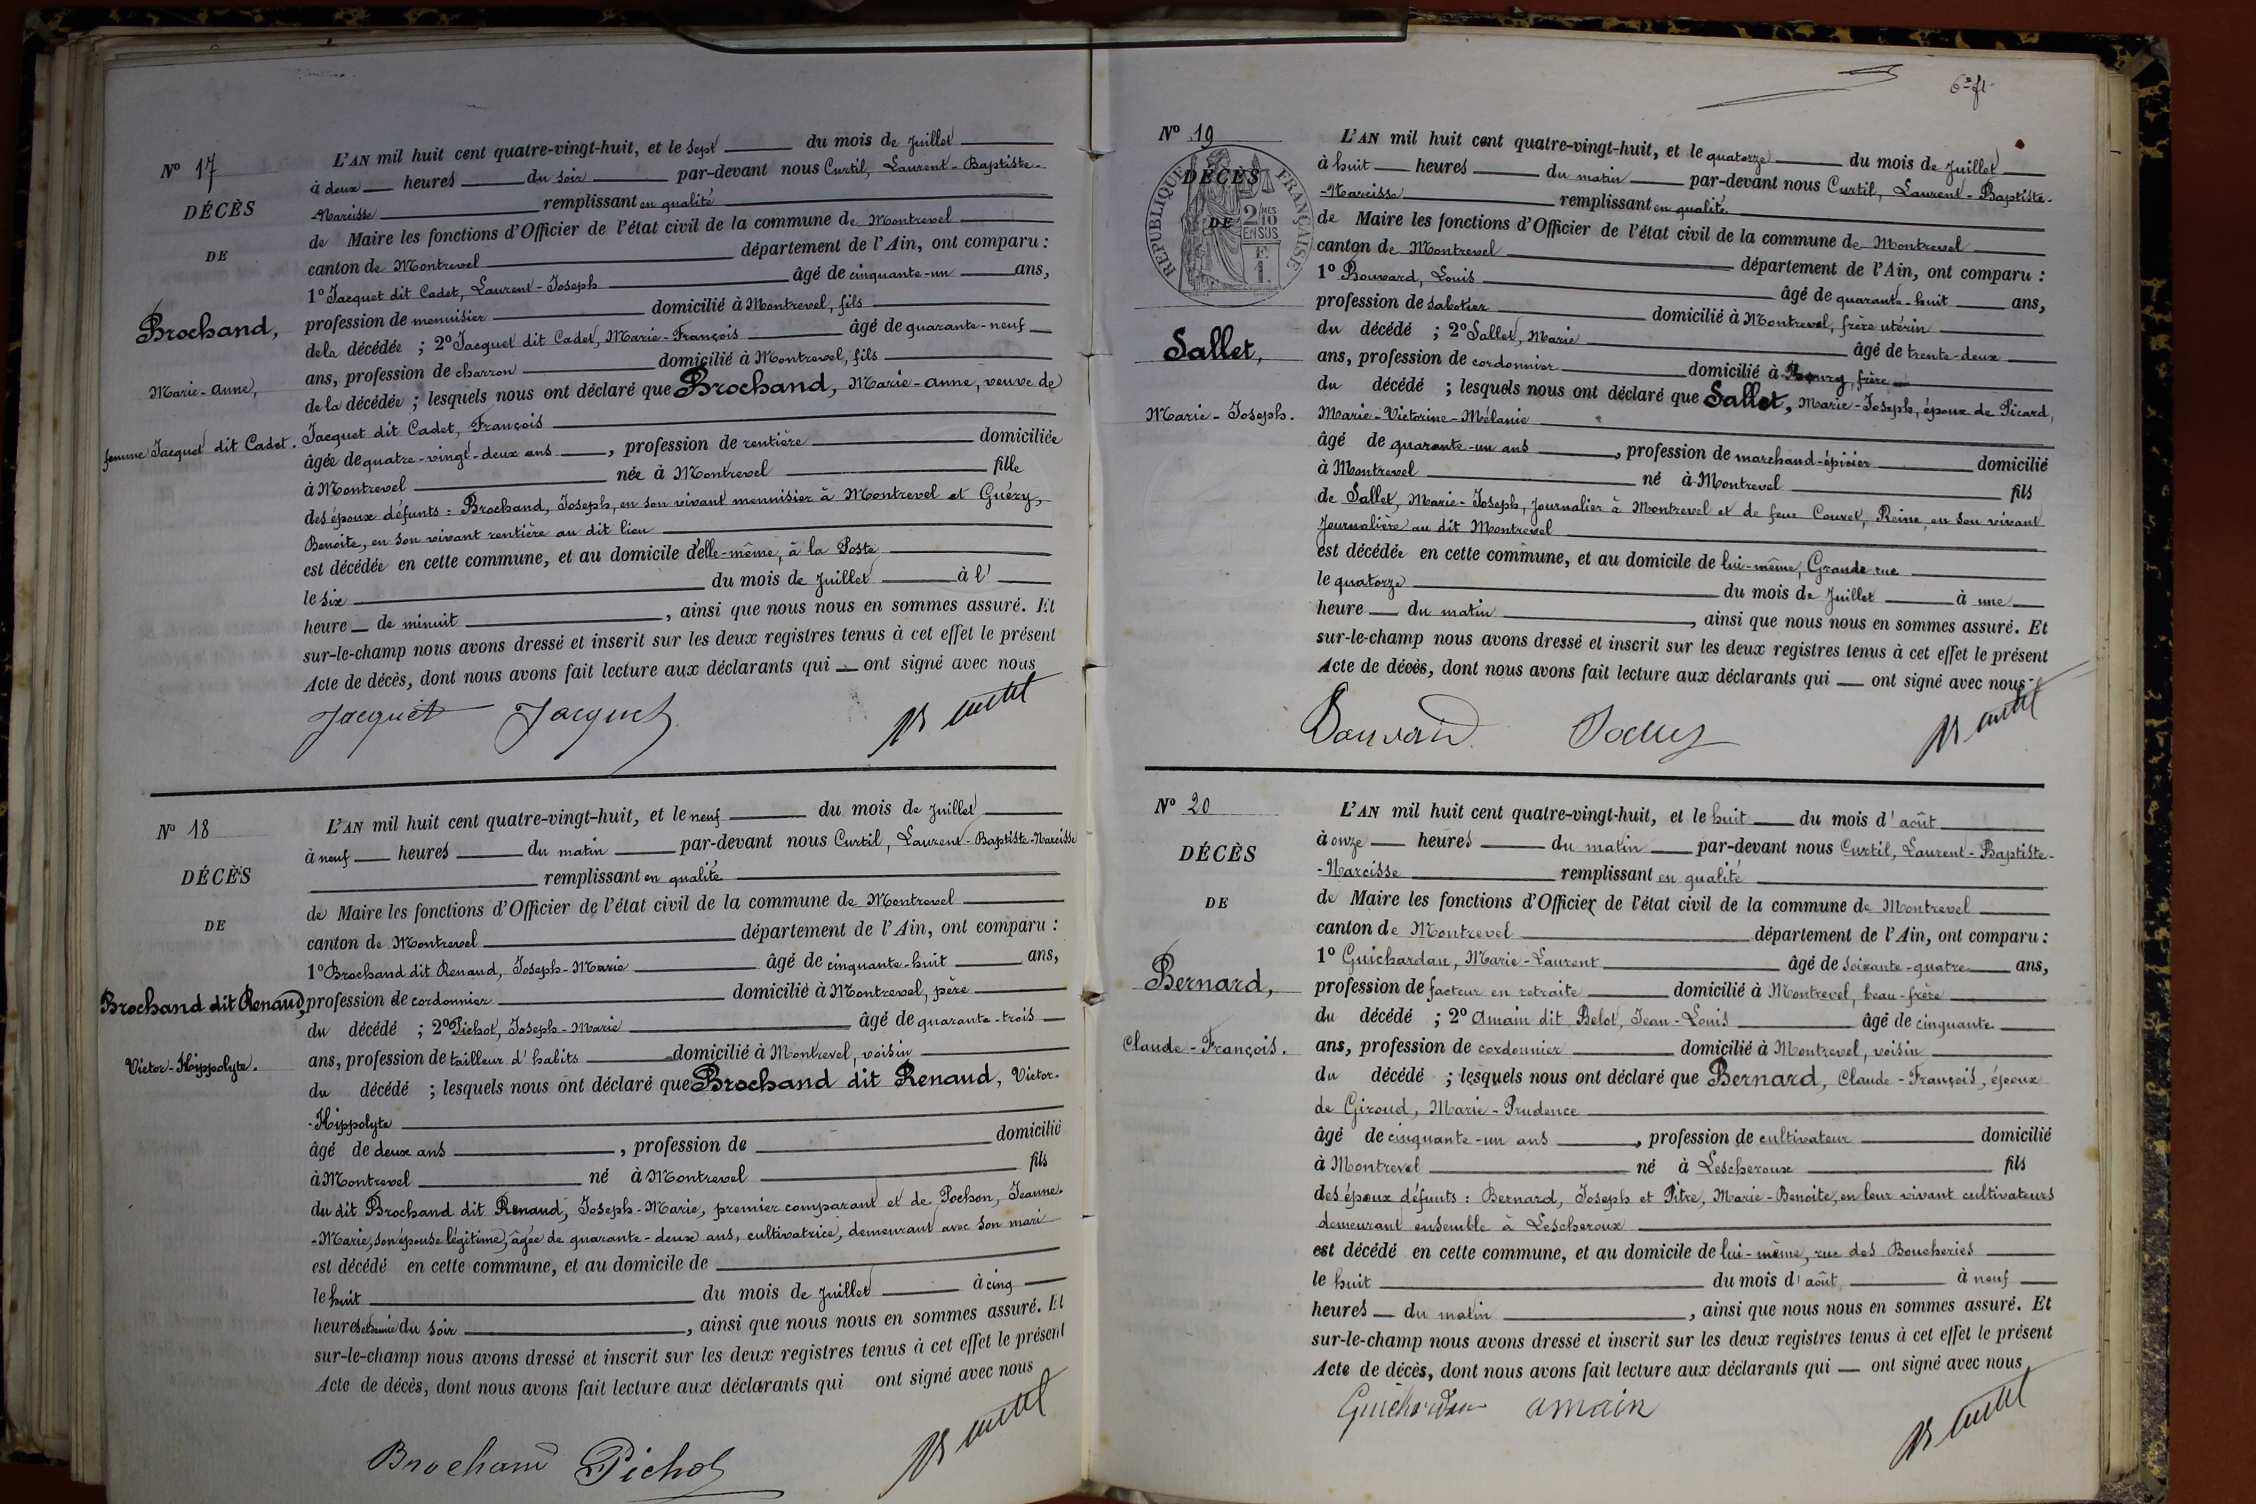 Nº 17
DÉCÈS
DE
Brochand,
Marie-Anne,
femme Jacquet dit Cadet.
L'AN mil huit cent quatre-vingt-huit, et le sept du mois de Juillet
à deux heures du soir par-devant nous Curtil, Laurent-Baptiste-
-Narcisse remplissant en qualité
de Maire les fonctions d'Officier de l'état civil de la commune de Montrevel
canton de Montrevel département de l'Ain, ont comparu :
1º Jacquet dit Cadet, Laurent-Joseph âgé de cinquante-un ans,
profession de menuisier domicilié à Montrevel, fils
de la décédée ; 2º Jacquet dit Cadet, Marie-François âgé de quarante-neuf
ans, profession de charron domicilié à Montrevel, fils
de la décédée ; lesquels nous ont déclaré que Brochand, Marie-Anne, veuve de
Jacquet dit Cadet, François
âgée de quatre-vingt-deux ans, profession de rentière domiciliée
à Montrevel née à Montrevel fille
des époux défunts : Brochand, Joseph, en son vivant menuisier à Montrevel et Guéry,
Benoite, en son vivant rentière au dit lieu
est décédée en cette commune, et au domicile d'elle-même, à la Poste
le six du mois de Juillet à l'
heure de minuit, ainsi que nous nous en sommes assuré. Et
sur-le-champ nous avons dressé et inscrit sur les deux registres tenus à cet effet le présent
Acte de décès, dont nous avons fait lecture aux déclarants qui ont signé avec nous
Jacquet Jacquet
Nº 18
DÉCÈS
DE
Brochand dit Renaud,
Victor-Hippolyte.
L'AN mil huit cent quatre-vingt-huit, et le neuf du mois de Juillet
à neuf heures du matin par-devant nous Curtil, Laurent-Baptiste-Narcisse
remplissant en qualité
de Maire les fonctions d'Officier de l'état civil de la commune de Montrevel
canton de Montrevel département de l'Ain, ont comparu :
1º Brochand dit Renaud, Joseph-Marie âgé de cinquante-huit ans,
profession de cordonnier domicilié à Montrevel, père
du décédé ; 2º Pichot, Joseph-Marie âgé de quarante-trois
ans, profession de tailleur d'habits domicilié à Montrevel, voisin
du décédé ; lesquels nous ont déclaré que Brochand dit Renaud, Victor-
-Hippolyte
âgé de deux ans, profession de domicilié
à Montrevel né à Montrevel fils
du dit Brochand dit Renaud, Joseph-Marie, premier comparant et de Pochon, Jeanne-
-Marie, son épouse légitime, âgée de quarante-deux ans, cultivatrice, demeurant avec son mari
est décédé en cette commune, et au domicile de
le huit du mois de Juillet à cinq
heures et demie du soir, ainsi que nous nous en sommes assuré. Et
sur-le-champ nous avons dressé et inscrit sur les deux registres tenus à cet effet le présent
Acte de décès, dont nous avons fait lecture aux déclarants qui ont signé avec nous
Brochand Pichot
Nº 19
DÉCÈS
DE
RÉPUBLIQUE FRANÇAISE
2/10 MES EN SUS
F. 1.
Sallet,
Marie-Joseph.
L'AN mil huit cent quatre-vingt-huit, et le quatorze du mois de Juillet
à huit heures du matin par-devant nous Curtil, Laurent-Baptiste-
-Narcisse remplissant en qualité
de Maire les fonctions d'Officier de l'état civil de la commune de Montrevel
canton de Montrevel département de l'Ain, ont comparu :
1º Bouvard, Louis âgé de quarante-huit ans,
profession de sabotier domicilié à Montrevel, frère utérin
du décédé ; 2º Sallet, Marie âgé de trente-deux
ans, profession de cordonnier domicilié à Bourg, frère
du décédé ; lesquels nous ont déclaré que Sallet, Marie-Joseph, époux de Picard,
Marie-Victorine-Mélanie
âgé de quarante-un ans, profession de marchand-épicier domicilié
à Montrevel né à Montrevel fils
de Sallet, Marie-Joseph, Journalier à Montrevel et de feue Couvet, Reine, en son vivant
Journalière au dit Montrevel
est décédée en cette commune, et au domicile de lui-même, Grande rue
le quatorze du mois de Juillet à une
heure du matin, ainsi que nous nous en sommes assuré. Et
sur-le-champ nous avons dressé et inscrit sur les deux registres tenus à cet effet le présent
Acte de décès, dont nous avons fait lecture aux déclarants qui ont signé avec nous
Bouvard
Nº 20
DÉCÈS
DE
Bernard,
Claude-François.
L'AN mil huit cent quatre-vingt-huit, et le huit du mois d'août
à onze heures du matin par-devant nous Curtil, Laurent-Baptiste-
-Narcisse remplissant en qualité
de Maire les fonctions d'Officier de l'état civil de la commune de Montrevel
canton de Montrevel département de l'Ain, ont comparu :
1º Guichardan, Marie-Laurent âgé de soixante-quatre ans,
profession de facteur en retraite domicilié à Montrevel, beau-frère
du décédé ; 2º Amain dit Belot, Jean-Louis âgé de cinquante
ans, profession de cordonnier domicilié à Montrevel, voisin
du décédé ; lesquels nous ont déclaré que Bernard, Claude-François, époux
de Giroud, Marie-Prudence
âgé de cinquante-un ans, profession de cultivateur domicilié
à Montrevel né à Lescheroux fils
des époux défunts : Bernard, Joseph et Pitre, Marie-Benoite, en leur vivant cultivateurs
demeurant ensemble à Lescheroux
est décédé en cette commune, et au domicile de lui-même, rue des Boucheries
le huit du mois d'août à neuf
heures du matin, ainsi que nous nous en sommes assuré. Et
sur-le-champ nous avons dressé et inscrit sur les deux registres tenus à cet effet le présent
Acte de décès, dont nous avons fait lecture aux déclarants qui ont signé avec nous
Guichardan amain